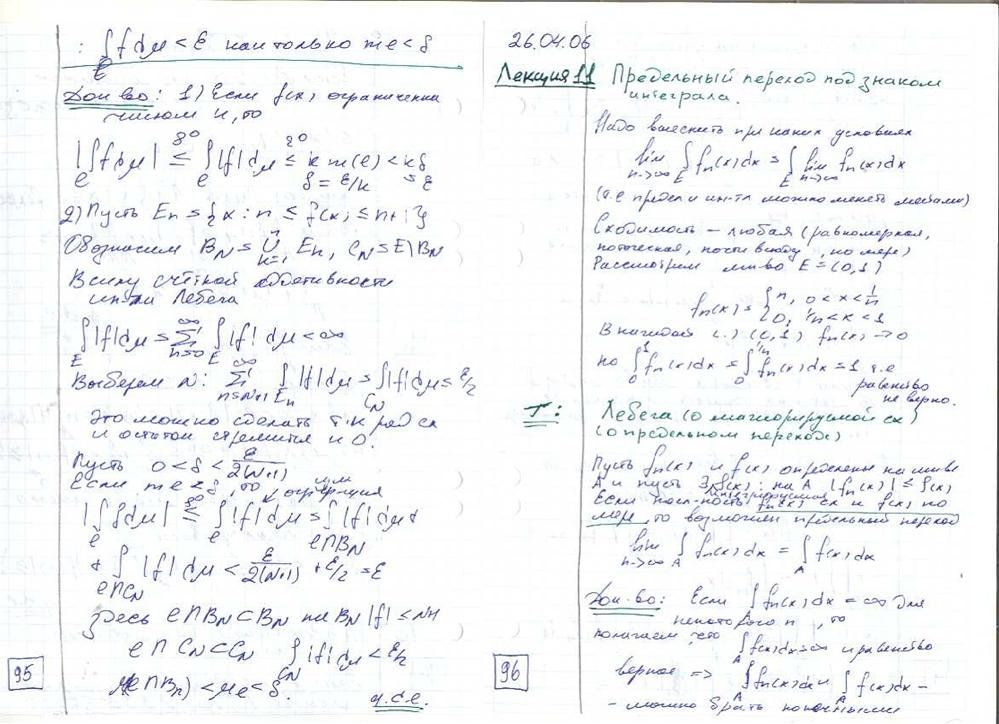 : ∫_e f dμ < ε как только me < δ
Док-во: 1) Если f(x) ограничена
числом к, то
|∫_e f dμ| ≤ ∫_e |f| dμ ≤ k m(e) < kδ
δ = ε/k = ε
2) Пусть En = {x : n ≤ f(x) ≤ n+1}
Обозначим B_N = ∪ En, C_N = E\B_N
В силу счётной аддетивности
инт-ла Лебега
∫_E |f| dμ = Σ_{n=0}^∞ ∫_E |f| dμ < ∞
Выберем N: Σ_{n=N+1}^∞ ∫_{En} |f| dμ = ∫_{C_N} |f| dμ = ε/2
это можно сделать т.к ряд сх
и остаток стремится к 0.
Пусть 0 < δ < ε/2(N+1)
Если me < δ, то
|∫_e f dμ| ≤ ∫_e |f| dμ = ∫_{e∩B_N} |f| dμ +
+ ∫_{e∩C_N} |f| dμ < ε/2(N+1) + ε/2 = ε
здесь e∩B_N ⊂ B_N на B_N |f| ≤ N+1
e∩C_N ⊂ C_N ∫_{C_N} |f| dμ < ε/2
μ(e∩B_N) < μe < δ.
ч.т.д.
95
26.04.06
Лекция 11 Предельный переход под знаком
интеграла.
Надо выяснить при каких условиях
lim_{n→∞} ∫_E fn(x)dx = ∫_E lim_{n→∞} fn(x)dx
(т.е предел и ин-л можно менять местами)
Сходимость – любая (равномерная,
поточечная, почти всюду, по мере)
Рассмотрим мн-во E = (0,1)
fn(x) = {n, 0 < x < 1/n
{0, 1/n < x < 1
В каждой (.) (0,1) fn(x) → 0
но ∫_0^1 fn(x)dx = ∫_0^{1/n} fn(x)dx = 1 т.е
равенство
не верно.
Т: Лебега (о мажорируемой сх)
(о предельном переходе)
Пусть fn(x) и f(x) определены на мн-ве
A и пусть ∃ f(x) : на A |fn(x)| ≤ f(x)
интегрируемая
Если посл-ность fn(x) сх к f(x) по
мере, то возможен предельный переход
lim_{n→∞} ∫_A fn(x)dx = ∫_A f(x)dx
Док-во: Если ∫_A fn(x)dx = ∞ для
некоторого n, то
полагаем, что ∫_A f(x)dx = ∞ и равенство
верное => ∫_A fn(x)dx и ∫_A f(x)dx –
– можно брать конечными
96